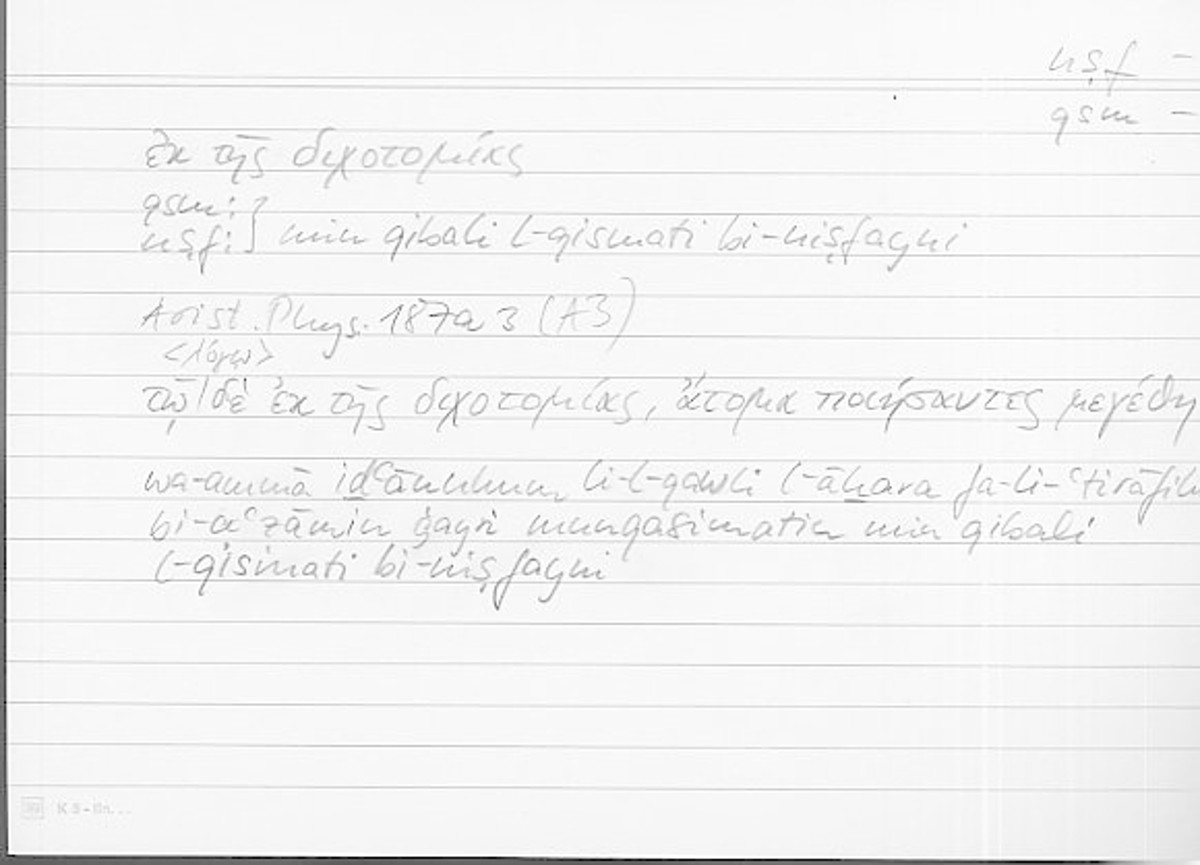 nṣf –
qsm –
ἐκ τῆς διχοτομίας
qsm:
nṣf: } min qibali l-qismati bi-niṣfayni
Arist. Phys. 187a 3 (A3)
<λόγῳ>
τῷ/δὲ ἐκ τῆς διχοτομίας, ἄτομα ποιήσαντες μεγέθη
wa-ammā iḏʿānuhum li-l-qawli l-āḫara fa-li-ʿtirāfih
bi-aʿẓāmin ġayri munqasimatin min qibali
l-qismati bi-niṣfayni